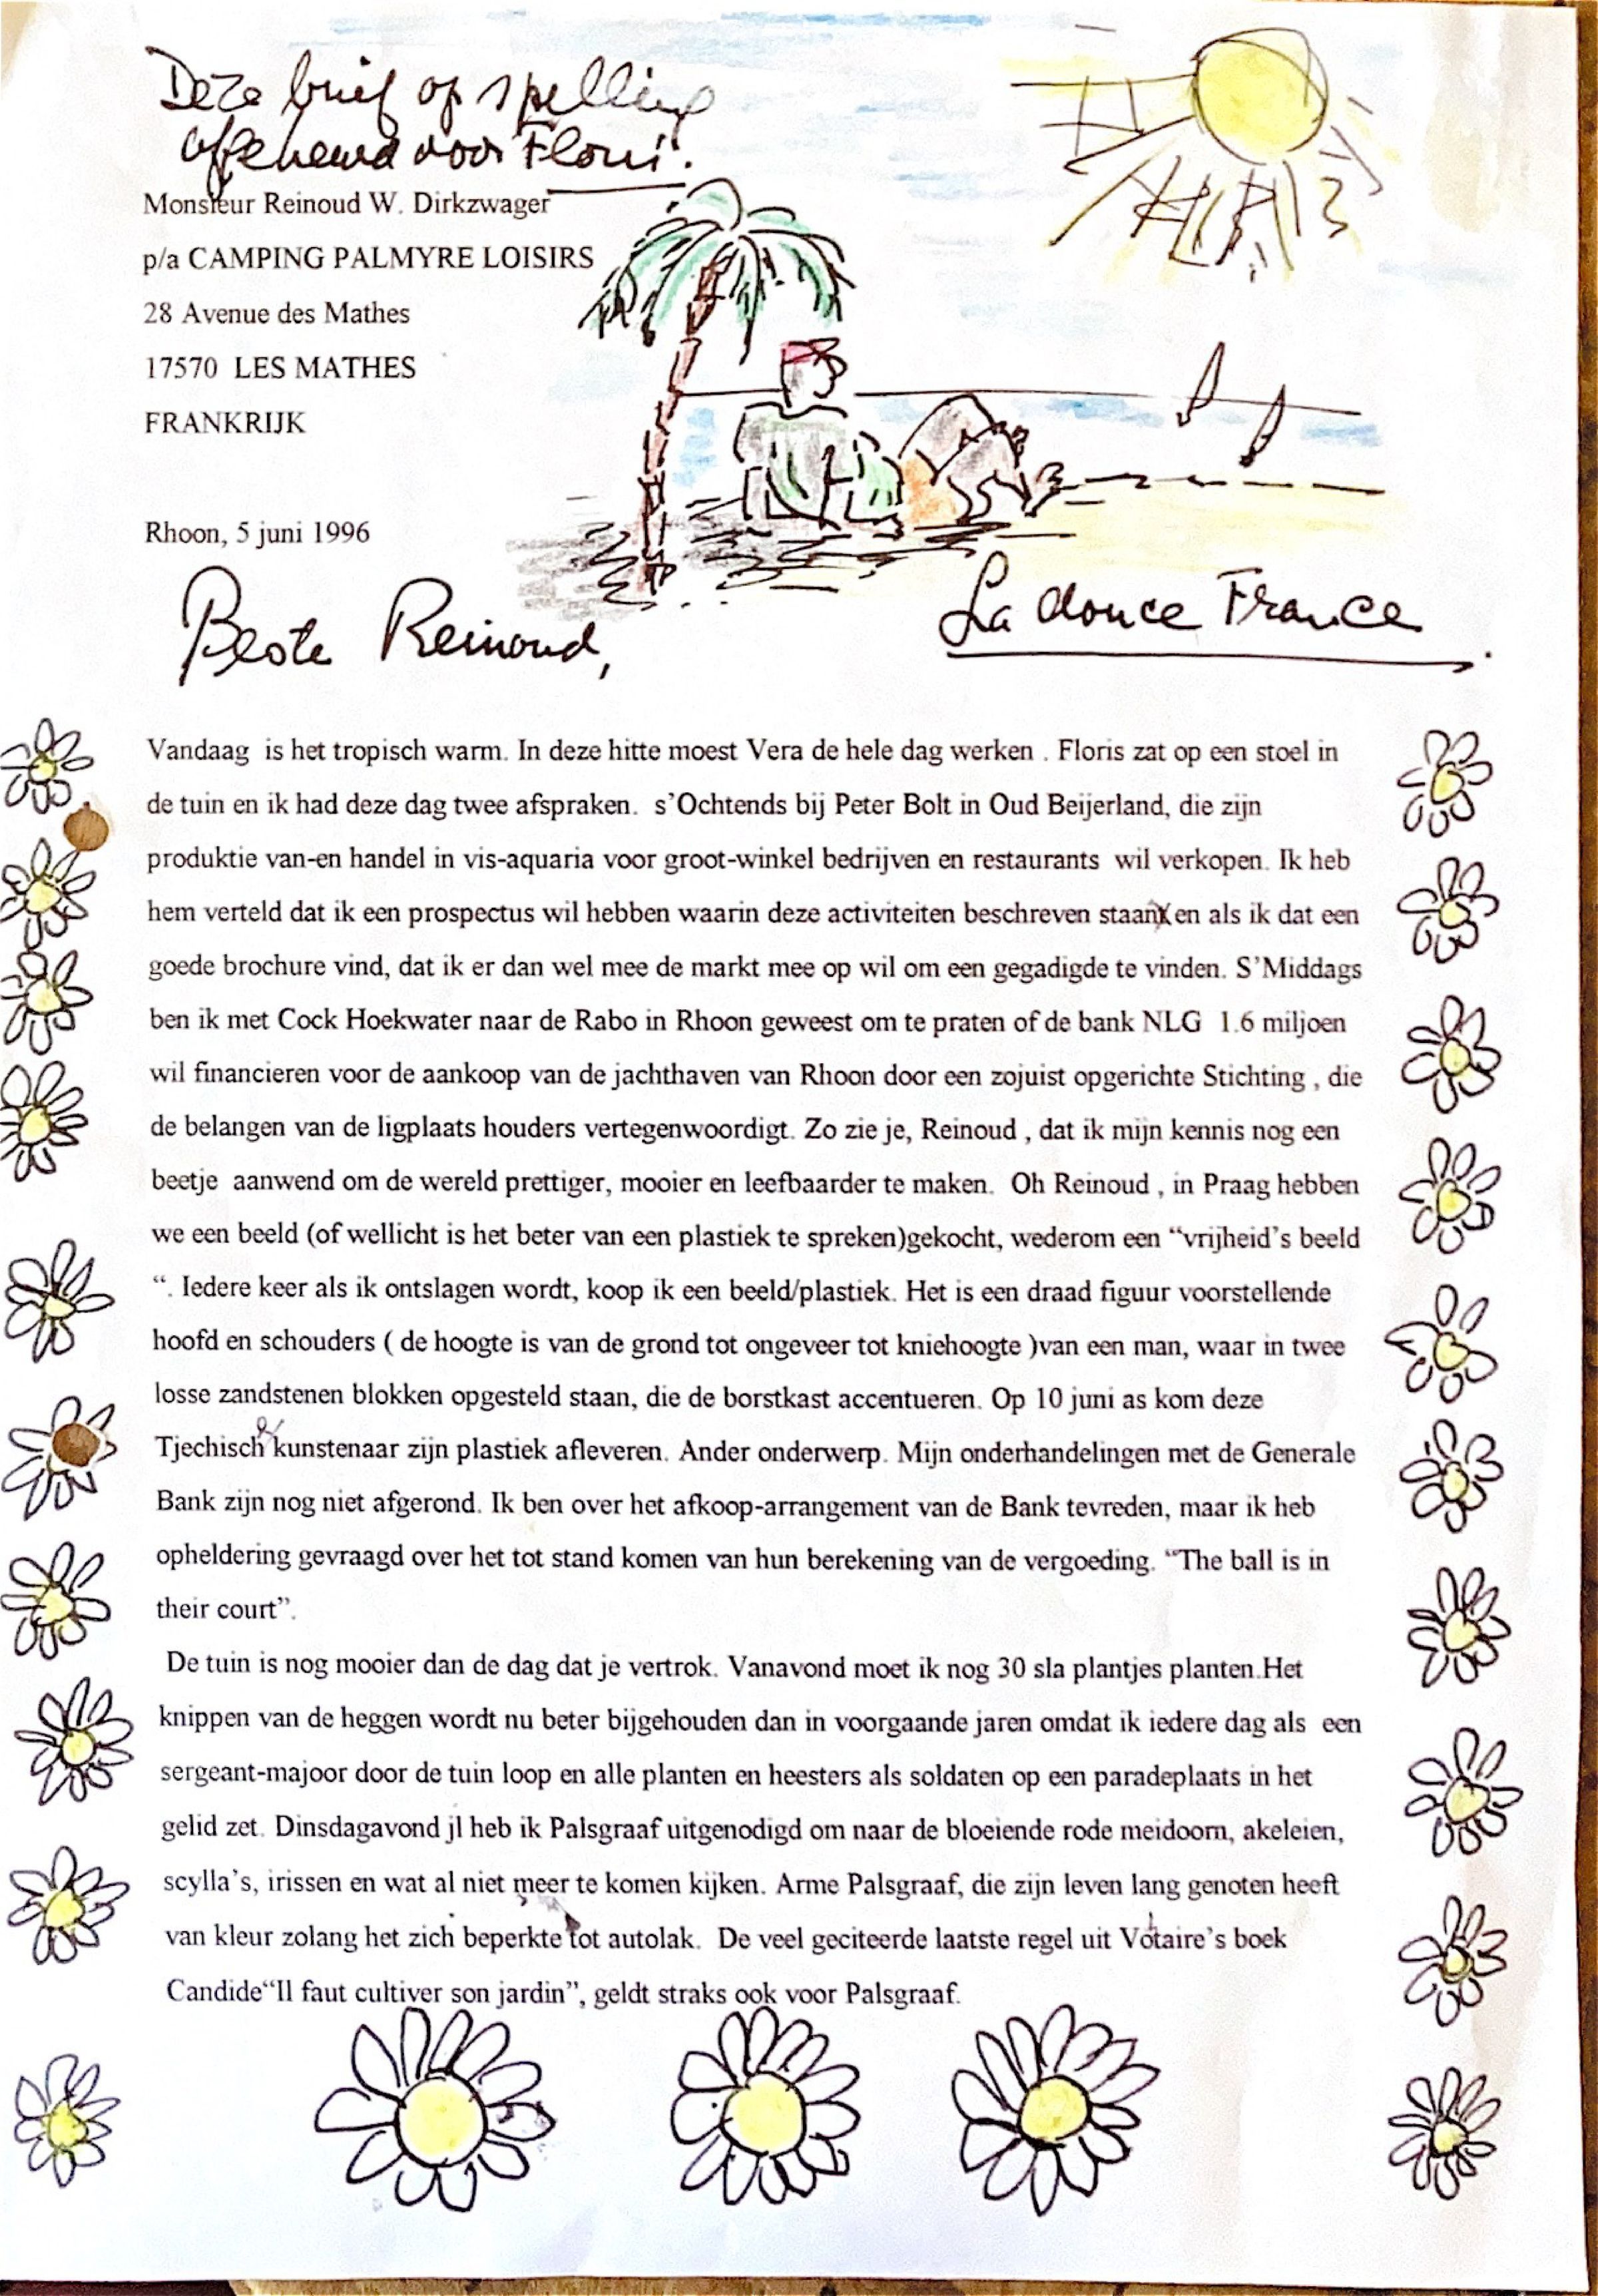 Deze brief op spelling
afgekeurd door Floris.
Monsieur Reinoud W. Dirkzwager
p/a CAMPING PALMYRE LOISIRS
28 Avenue des Mathes
17570  LES MATHES
FRANKRIJK
Rhoon, 5 juni 1996
Beste Reinoud,
La douce France
Vandaag  is het tropisch warm. In deze hitte moest Vera de hele dag werken . Floris zat op een stoel in
de tuin en ik had deze dag twee afspraken.  s’Ochtends bij Peter Bolt in Oud Beijerland, die zijn
produktie van-en handel in vis-aquaria voor groot-winkel bedrijven en restaurants  wil verkopen. Ik heb
hem verteld dat ik een prospectus wil hebben waarin deze activiteiten beschreven staan en als ik dat een
goede brochure vind, dat ik er dan wel mee de markt mee op wil om een gegadigde te vinden. S’Middags
ben ik met Cock Hoekwater naar de Rabo in Rhoon geweest om te praten of de bank NLG  1.6 miljoen
wil financieren voor de aankoop van de jachthaven van Rhoon door een zojuist opgerichte Stichting , die
de belangen van de ligplaats houders vertegenwoordigt. Zo zie je, Reinoud , dat ik mijn kennis nog een
beetje  aanwend om de wereld prettiger, mooier en leefbaarder te maken.  Oh Reinoud , in Praag hebben
we een beeld (of wellicht is het beter van een plastiek te spreken)gekocht, wederom een “vrijheid’s beeld
“. Iedere keer als ik ontslagen wordt, koop ik een beeld/plastiek. Het is een draad figuur voorstellende
hoofd en schouders ( de hoogte is van de grond tot ongeveer tot kniehoogte )van een man, waar in twee
losse zandstenen blokken opgesteld staan, die de borstkast accentueren. Op 10 juni as kom deze
Tjechische kunstenaar zijn plastiek afleveren. Ander onderwerp. Mijn onderhandelingen met de Generale
Bank zijn nog niet afgerond. Ik ben over het afkoop-arrangement van de Bank tevreden, maar ik heb
opheldering gevraagd over het tot stand komen van hun berekening van de vergoeding. “The ball is in
their court”.
De tuin is nog mooier dan de dag dat je vertrok. Vanavond moet ik nog 30 sla plantjes planten.Het
knippen van de heggen wordt nu beter bijgehouden dan in voorgaande jaren omdat ik iedere dag als  een
sergeant-majoor door de tuin loop en alle planten en heesters als soldaten op een paradeplaats in het
gelid zet. Dinsdagavond jl heb ik Palsgraaf uitgenodigd om naar de bloeiende rode meidoorn, akeleien,
scylla’s, irissen en wat al niet meer te komen kijken. Arme Palsgraaf, die zijn leven lang genoten heeft
van kleur zolang het zich beperkte tot autolak.  De veel geciteerde laatste regel uit Voltaire’s boek
Candide“Il faut cultiver son jardin”, geldt straks ook voor Palsgraaf.